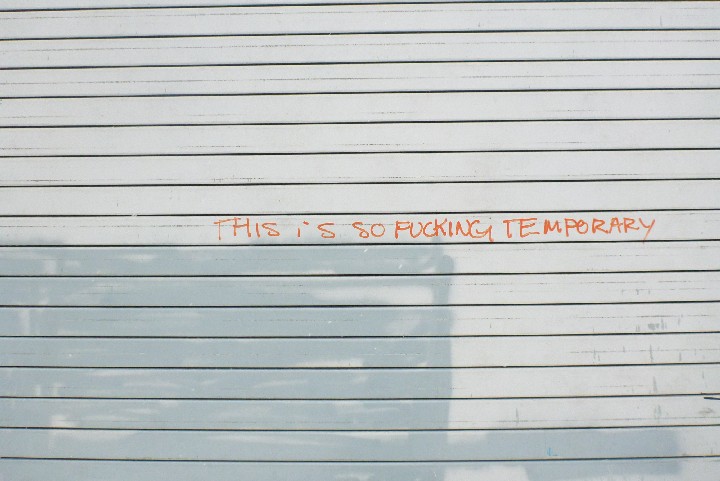 THIS iS SO FUCKING TEMPORARY